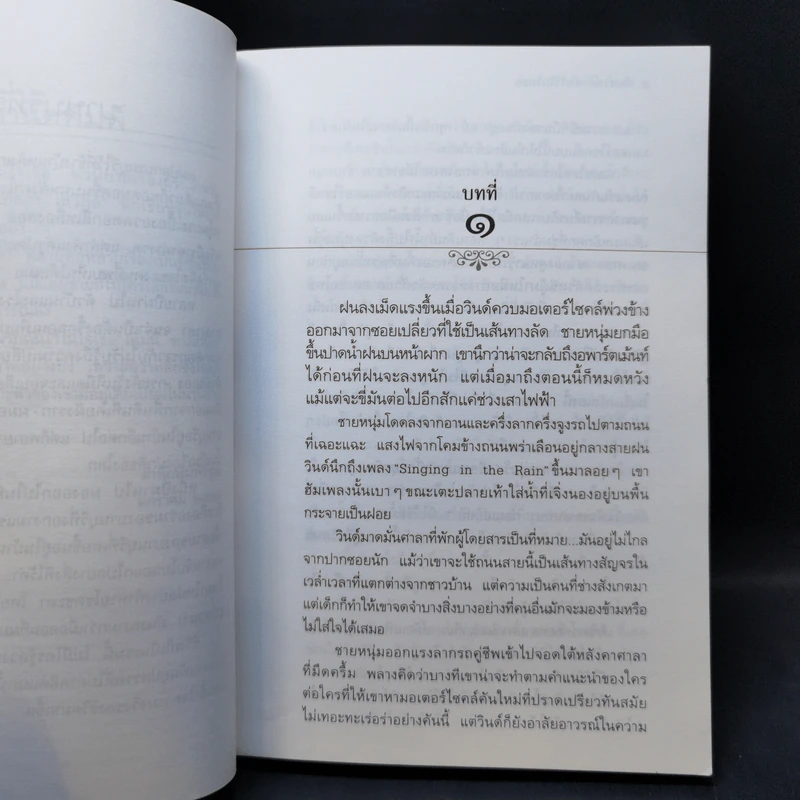 บทที่
๑
ฝนลงเม็ดแรงขึ้นเมื่อวินด์ควบมอเตอร์ไซคล์พ่วงข้าง
ออกมาจากซอยเปลี่ยวที่ใช้เป็นเส้นทางลัด ชายหนุ่มยกมือ
ขึ้นปาดน้ำฝนบนหน้าผาก เขานึกว่าน่าจะกลับถึงอพาร์ตเม้นท์
ได้ก่อนที่ฝนจะลงหนัก แต่เมื่อมาถึงตอนนี้ก็หมดหวัง
แม้แต่จะขี่มันต่อไปอีกสักแค่ช่วงเสาไฟฟ้า
ชายหนุ่มโดดลงจากอานและครึ่งลากครึ่งจูงรถไปตามถนน
ที่เฉอะแฉะ แสงไฟจากโคมข้างถนนพร่าเลือนอยู่กลางสายฝน
วินด์นึกถึงเพลง “Singing in the Rain” ขึ้นมาลอยๆ เขา
ฮัมเพลงนั้นเบาๆ ขณะเตะปลายเท้าใส่น้ำที่เจิ่งนองอยู่บนพื้น
กระจายเป็นฝอย
วินด์มาดมั่นศาลาที่พักผู้โดยสารเป็นที่หมาย...มันอยู่ไม่ไกล
จากปากซอยนัก แม้ว่าเขาจะใช้ถนนสายนี้เป็นเส้นทางสัญจรใน
เวล่ำเวลาที่แตกต่างจากชาวบ้าน แต่ความเป็นคนที่ช่างสังเกตมา
แต่เด็กก็ทำให้เขาจดจำบางสิ่งบางอย่างที่คนอื่นมักจะมองข้ามหรือ
ไม่ใส่ใจได้เสมอ
ชายหนุ่มออกแรงลากรถคู่ชีพเข้าไปจอดใต้หลังคาศาลา
ที่มืดครึ้ม พลางคิดว่าบางทีเขาน่าจะทำตามคำแนะนำของใคร
ต่อใครที่ให้เขาหามอเตอร์ไซคล์คันใหม่ที่ปราดเปรียวทันสมัย
ไม่เทอะทะเร่อร่าอย่างคันนี้ แต่วินด์ก็ยังอาลัยอาวรณ์ในความ